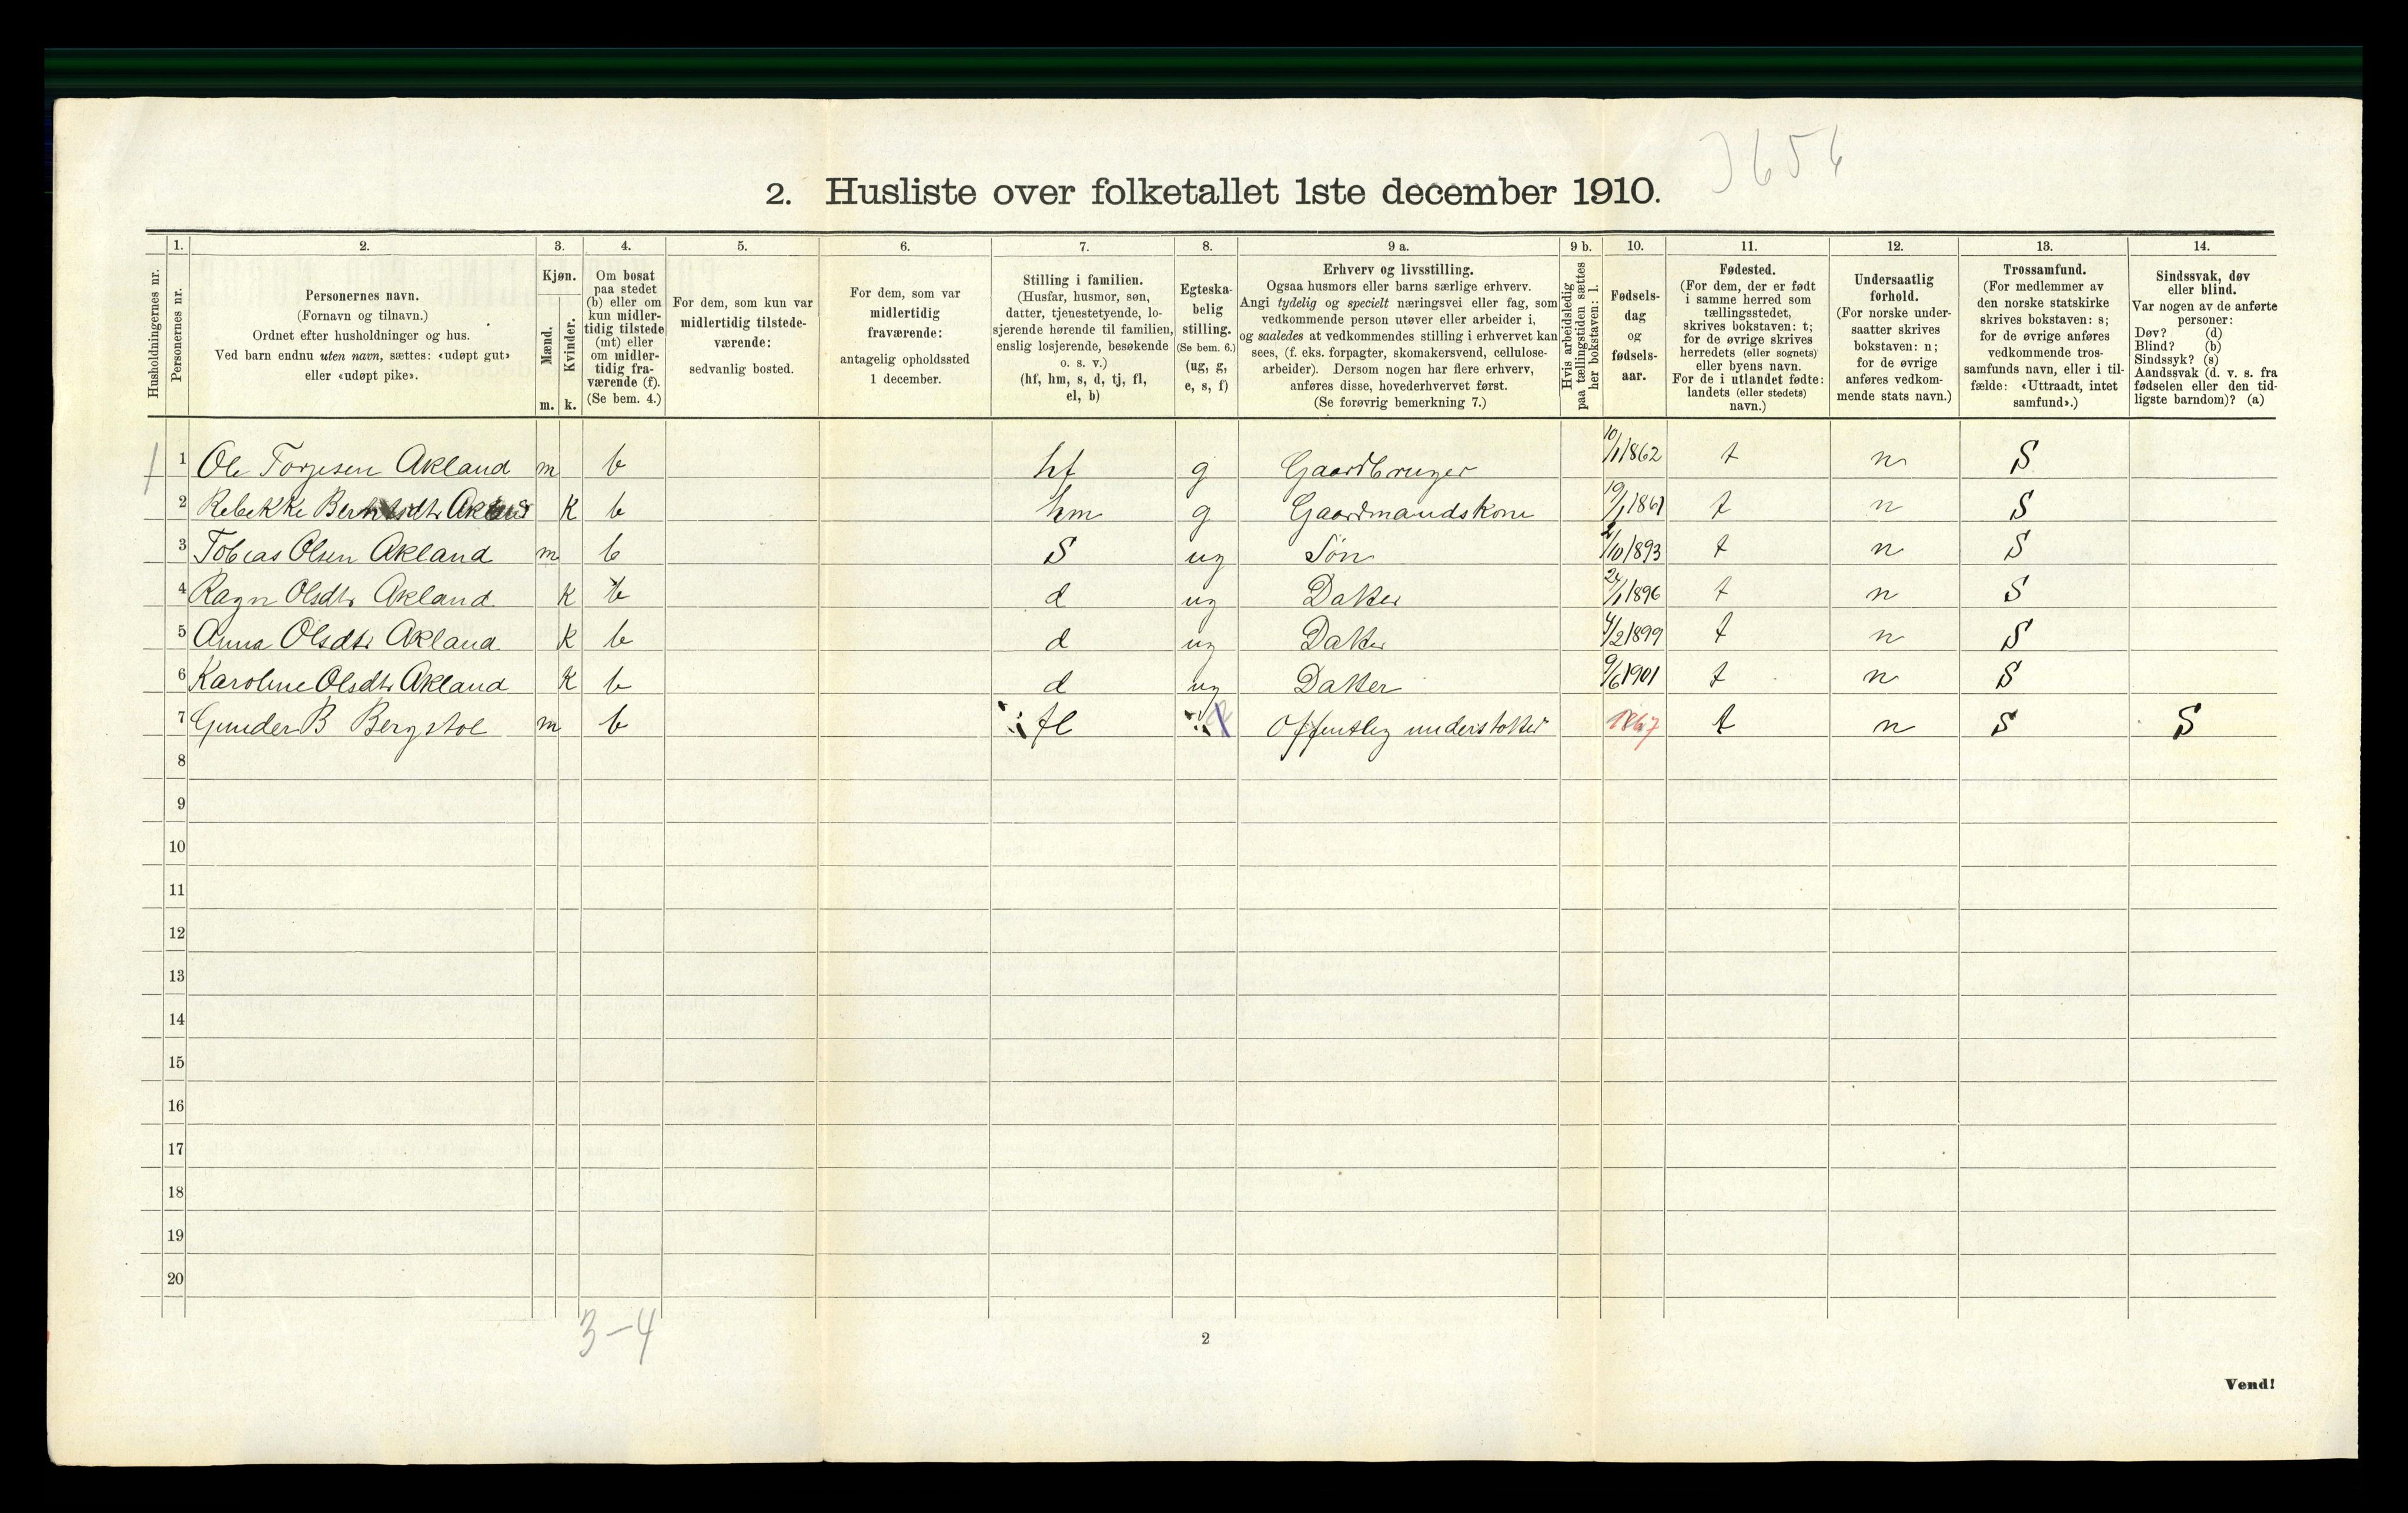 3656
2. Husliste over folketallet 1ste december 1910.
1. 2. 3. 4. 5. 6. 7. 8. 9 a. 9 b. 10. 11. 12. 13. 14.
Husholdningernes nr.
Personernes nr.
Personernes navn.
(Fornavn og tilnavn.)
Ordnet efter husholdninger og hus.
Ved barn endnu uten navn, sættes: «udøpt gut»
eller «udøpt pike».
Kjøn.
Mænd.
Kvinder.
m. k.
Om bosat
paa stedet
(b) eller om
kun midler-
tidig tilstede
(mt) eller
om midler-
tidig fra-
værende (f).
(Se bem. 4.)
For dem, som kun var
midlertidig tilstede-
værende:
sedvanlig bosted.
For dem, som var
midlertidig
fraværende:
antagelig opholdssted
1 december.
Stilling i familien.
(Husfar, husmor, søn,
datter, tjenestetyende, lo-
sjerende hørende til familien,
enslig losjerende, besøkende
o. s. v.)
(hf, hm, s, d, tj, fl,
el, b)
Egteska-
belig
stilling.
(Se bem. 6.)
(ug, g,
e, s, f)
Erhverv og livsstilling.
Ogsaa husmors eller barns særlige erhverv.
Angi tydelig og specielt næringsvei eller fag, som
vedkommende person utøver eller arbeider i,
og saaledes at vedkommendes stilling i erhvervet kan
sees, (f. eks. forpagter, skomakersvend, cellulose-
arbeider). Dersom nogen har flere erhverv,
anføres disse, hovederhvervet først.
(Se forøvrig bemerkning 7.)
Hvis arbeidsledig
paa tællingstiden sættes
her bokstaven: l.
Fødsels-
dag
og
fødsels-
aar.
Fødested.
(For dem, der er født
i samme herred som
tællingsstedet,
skrives bokstaven: t;
for de øvrige skrives
herredets (eller sognets)
eller byens navn.
For de i utlandet fødte:
landets (eller stedets)
navn.)
Undersaatlig
forhold.
(For norske under-
saatter skrives
bokstaven: n;
for de øvrige
anføres vedkom-
mende stats navn.)
Trossamfund.
(For medlemmer av
den norske statskirke
skrives bokstaven: s;
for de øvrige anføres
vedkommende tros-
samfunds navn, eller i til-
fælde: «Uttraadt, intet
samfund».)
Sindssvak, døv
eller blind.
Var nogen av de anførte
personer:
Døv? (d)
Blind? (b)
Sindssyk? (s)
Aandssvak (d. v. s. fra
fødselen eller den tid-
ligste barndom)? (a)
1 Ole Torjesen Akland m b hf g Gaardbruger 10/1 1862 t n S
2 Rebekke Akland K b hm g Gaardmandskone 19/1 1861 t n S
3 Tobias Olsen Akland m b S ug Søn /10 1893 t n S
4 Ragn Olsdtr Akland K b d ug Datter 24/1 1896 t n S
5 Anna Olsdtr Akland K b d ug Datter 4/2 1899 t n S
6 Karoline Olsdtr Akland K b d ug Datter 9/6 1901 t n S
7 Gunder B Bergstol m b fl Offentlig understøttet 1867 t n S S
8
9
10
11
12
13
14
15
16
17
18
19
20
3-4
2
Vend!